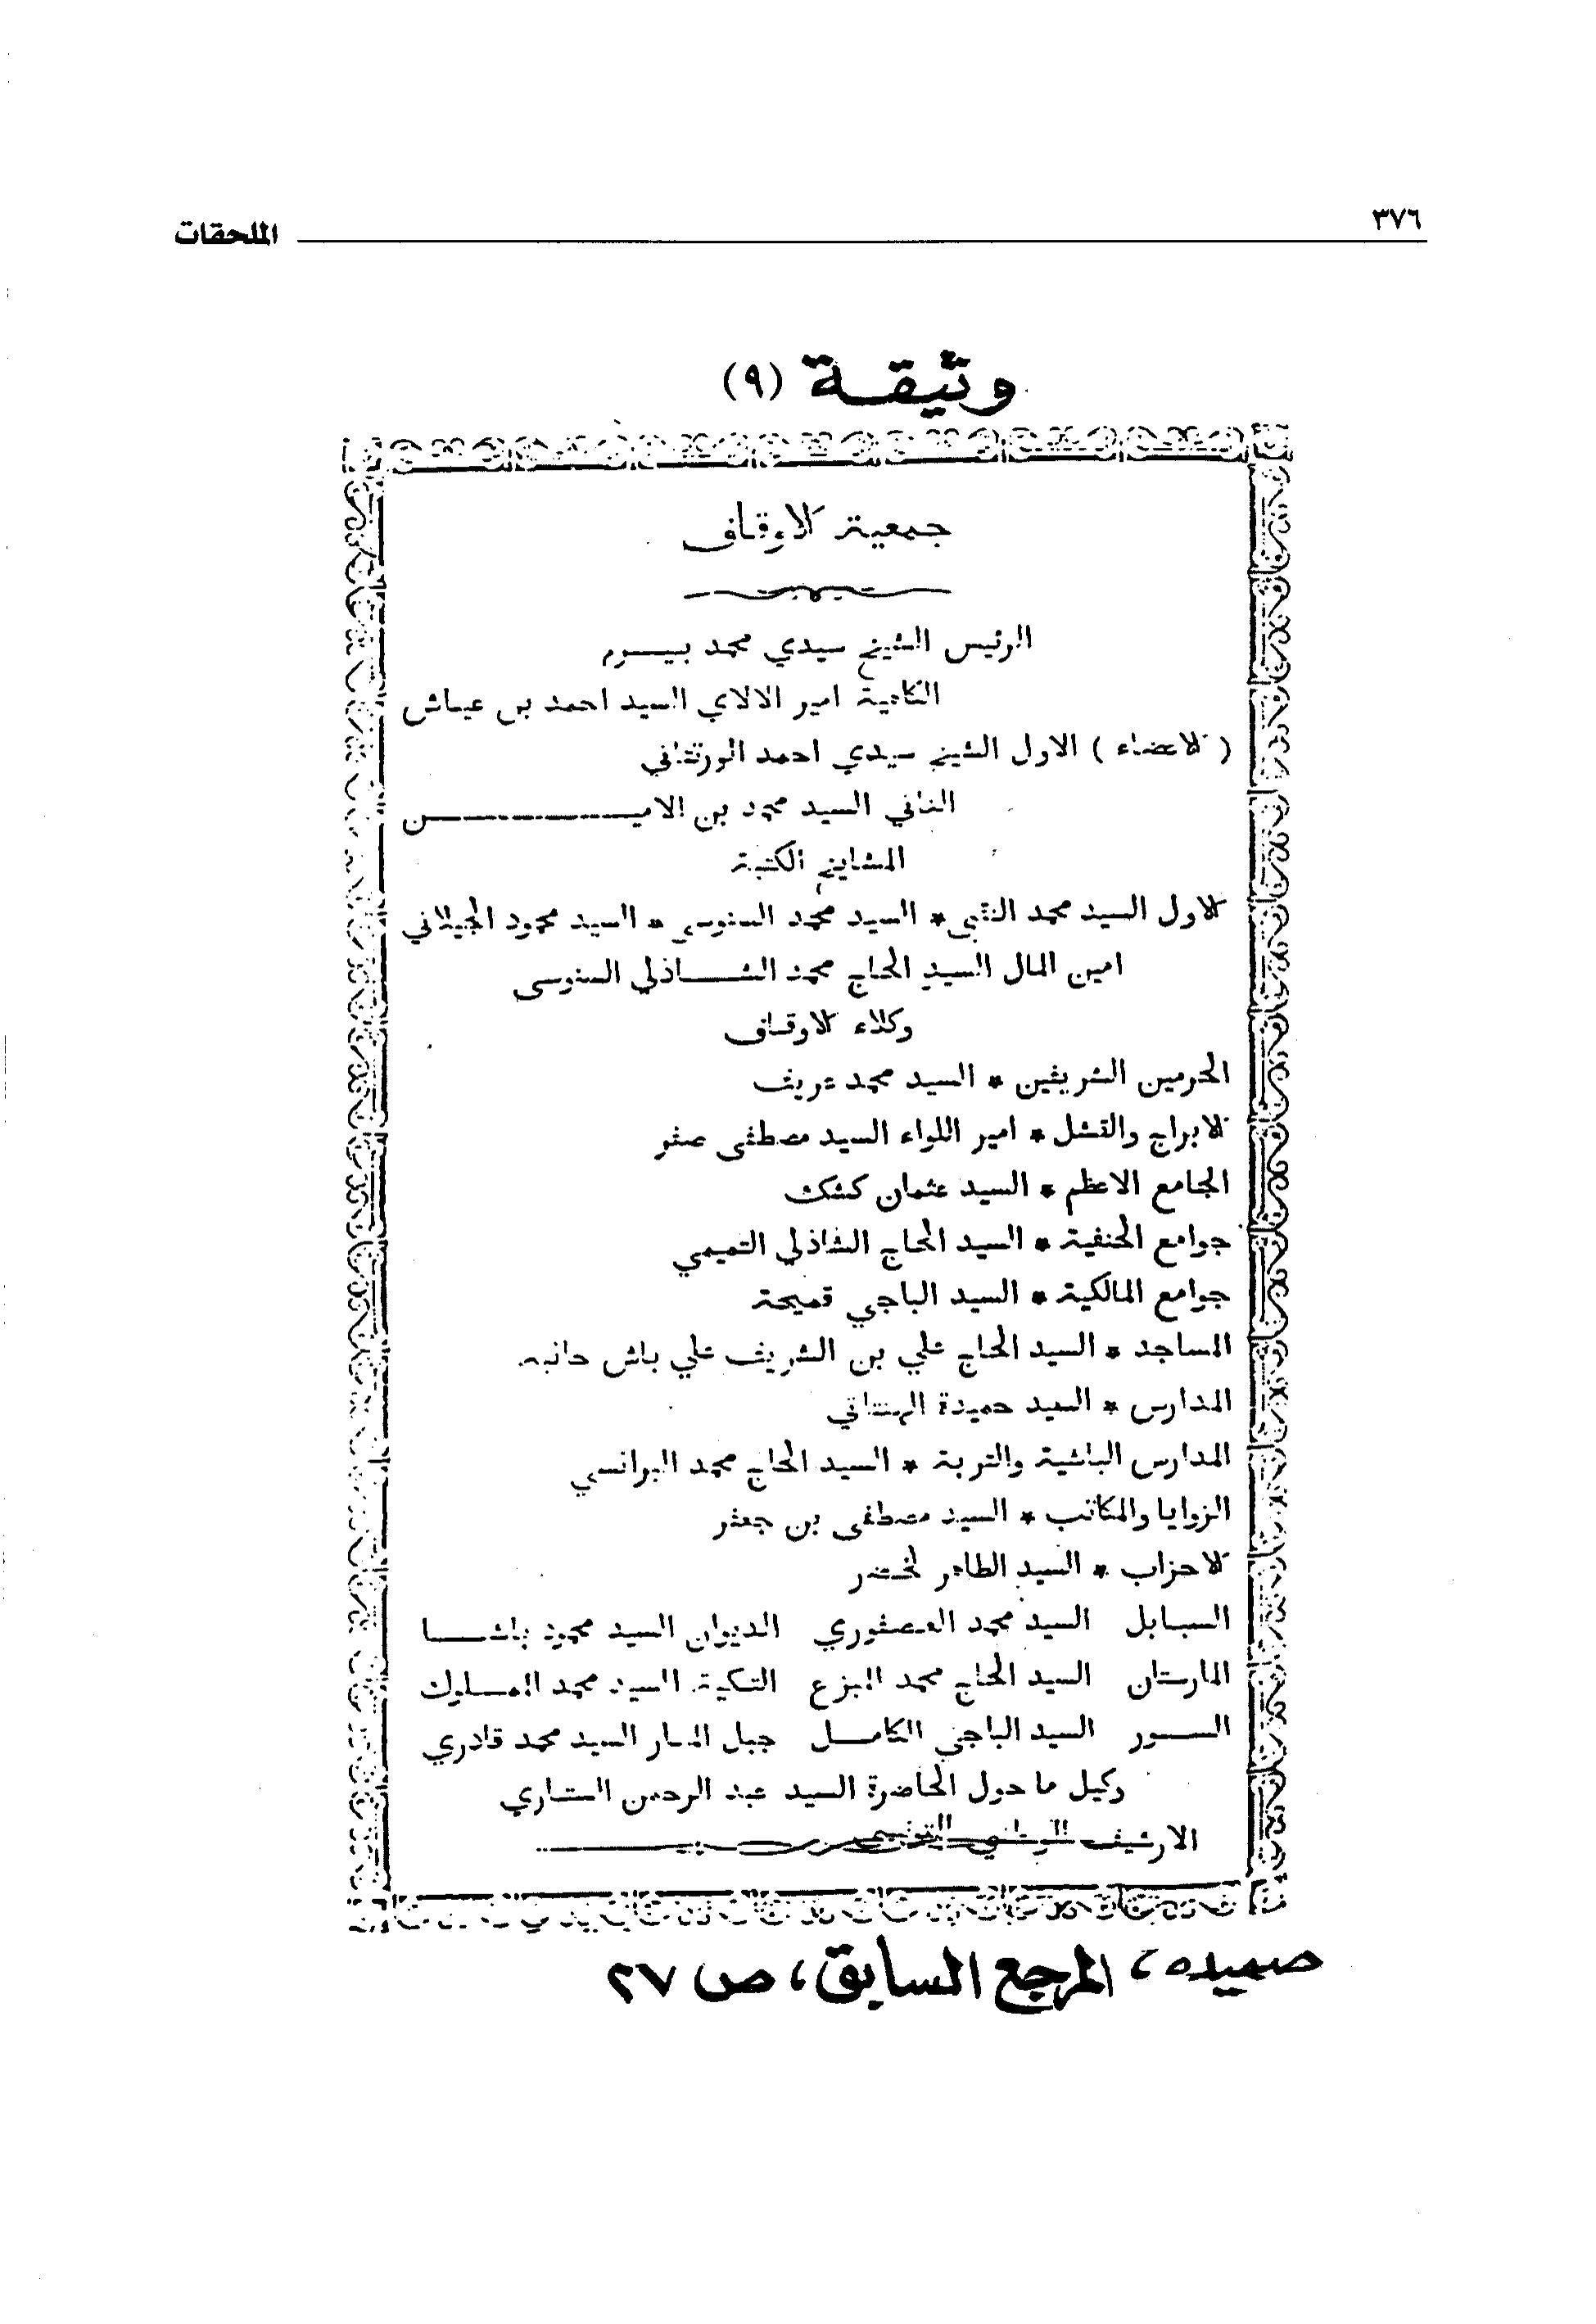 ٣٧٦
الملحقات
وثيقة (٩)
جمعية الاوقاف
الرئيس الشيخ سيدي محمد بيــرم
الكاهية امير الالاي السيد احمد بن عياش
( الاعضاء ) الاول الشيخ سيدي احمد الورتتاني
الثاني السيد محمد بن الاميــن
المشايخ الكتبة
الاول السيد محمد النقبي * السيد محمد السنوسي * السيد محمود الجيلاني
امين المال السيد الحاج محمد الشــاذلي السنوسي
وكلاء الاوقاف
الحرمين الشريفين * السيد محمد عريف
الابراج والقشل * امير اللواء السيد مصطفى صفر
الجامع الاعظم * السيد عثمان كشك
جوامع الحنفية * السيد الحاج الشاذلي التميمي
جوامع المالكية * السيد الباجي قميحة
المساجد * السيد الحاج علي بن الشريف علي باش حانبه
المدارس * السيد حميدة الهنتاتي
المدارس الباشية والتربة * السيد الحاج محمد البرانسي
الزوايا والمكاتب * السيد مصطفى بن جعفر
الاحزاب * السيد الطاهر لخضر
السبابل السيد محمد العصفوري الديوان السيد محمود باشــا
المارستان السيد الحاج محمد المبزع التكية السيد محمد المملوك
الســور السيد الباجي الكامــل جبل المنار السيد محمد قادري
وكيل ما حول الحاضرة السيد عبد الرحمن الستاري
الارشيف الوطني التونسي
صميده، المرجع السابق، ص ٢٧